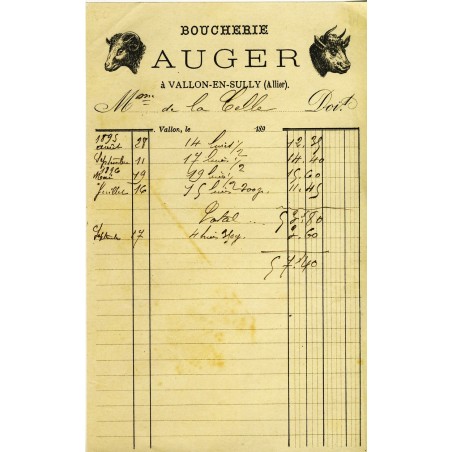 BOUCHERIE
AUGER
à VALLON-EN-SULLY (Allier).
Mme de la Celle Doit
Vallon, le 189
1895
août 28 14 1/2 12.35
Septembre 11 17 1/2 14.40
1896
19 19 1/2 15.60
Juillet 16 15 1/2 200g. 11.45
Total .. 53.80
Septembre 17 4 3.60
57.40